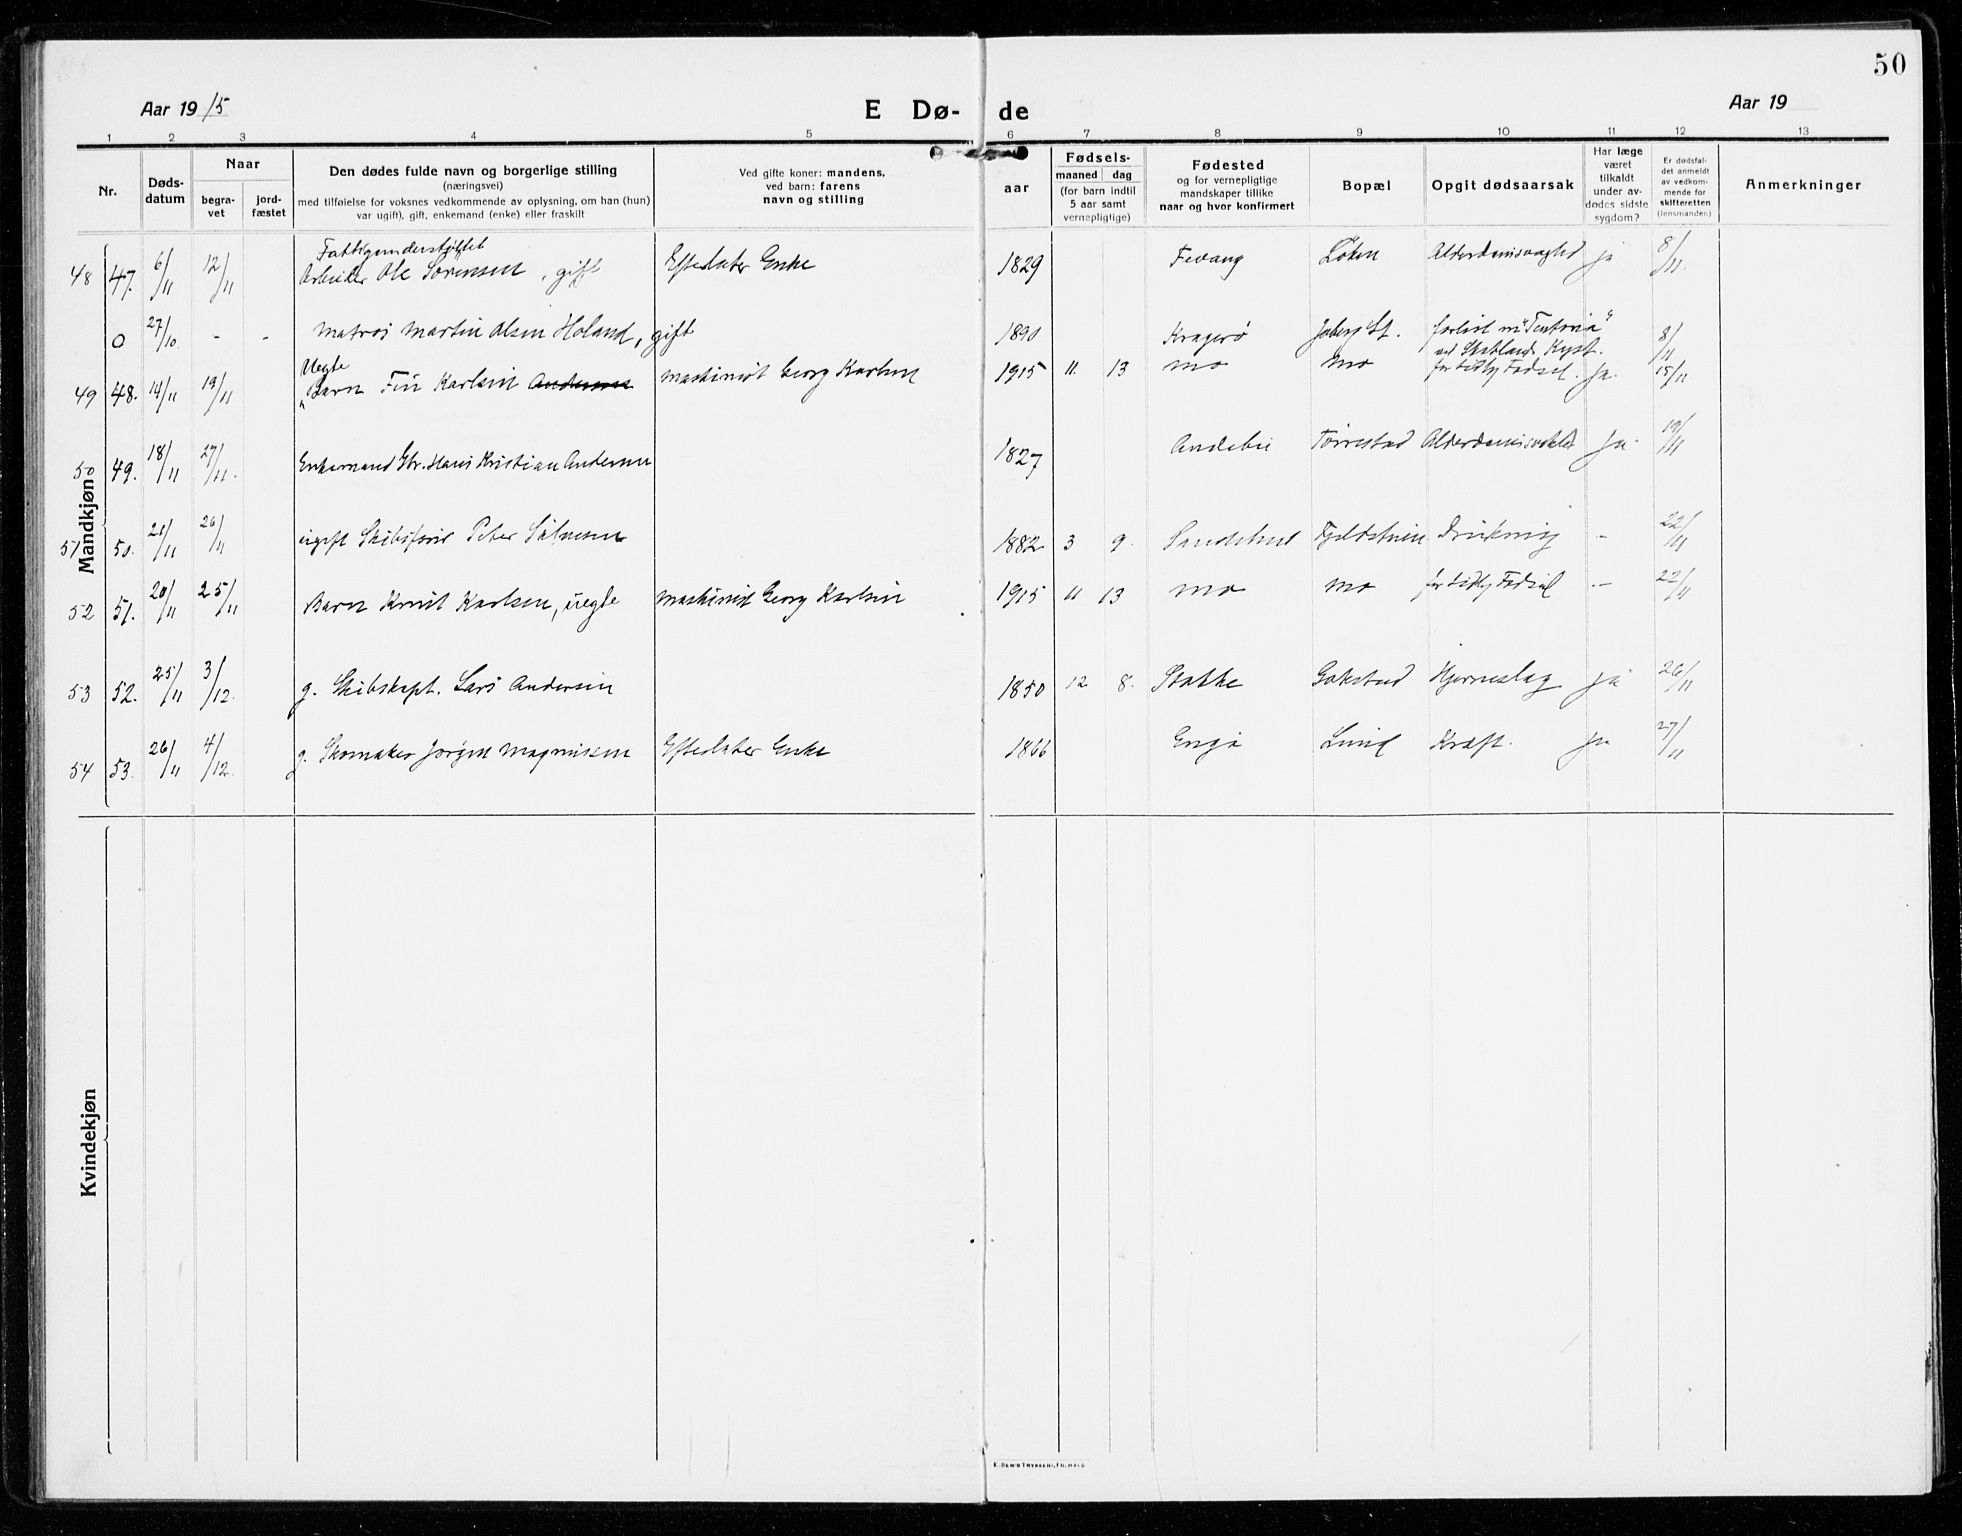 50
Aar 1915
E Dø-
de
Aar 19
1 2 3 4 5 6 7 8 9 10 11 12 13
Nr.
Døds-
datum
Naar
begra-
vet
jord-
fæstet
Den dødes fulde navn og borgerlige stilling
(næringsvei)
med tilføielse for voksnes vedkommende av oplysning, om han (hun)
var ugift), gift, enkemand (enke) eller fraskilt
Ved gifte koner: mandens,
ved barn: farens
navn og stilling
aar
Fødsels-
maaned dag
(for barn indtil
5 aar samt
vernepligtige)
Fødested
og for vernepligtige
mandskaper tillike
naar og hvor konfirmert
Bopæl
Opgit dødsaarsak
Har læge
været
tilkaldt
under av-
dødes sidste
sygdom?
Er dødsfal-
det anmeldt
av vedkom-
mende for
skifteretten
(lensmanden)
Anmerkninger
Mandkjøn
Fattigunderstøttet
48 47. 6/11 12/11 Arbeider Ole Sørensen, gift Efterlater Enke 1829 Fevang Løken Alderdomssvaghed ja 8/11.
0 27/10. - - Matros Martin Olsen Holand, gift 1890 Kragerø Joberg St. forlist m "Tentoria"
ved Skotlands Kyst. 8/11
Uegte
49 48. 14/11 19/11 Barn Fin Karlsen Andersen Maskinist Georg Karlsen 1915 11. 13 Mo Mo for tidlig Fødsel. Ja. 15/11
50 49. 18/11 27/11. Enkemand Gbr. Hans Kristian Andersen 1827 Andebu Tørrestad Alderdomssvakhed Ja. 19/11
51 50. 21/11 26/11 ugift Skibsfører Peter 1882 3 9. Sandeherred Drukning - 22/11
52 51. 20/11 25/11 Barn Knut Karlsen, uegte Maskinist Georg Karlsen 1915 11 13 Mo Mo for tidlig Fødsel - 22/11
53 52. 25/11 3/12. g. Skibskapt. Lars Andersen 1850 12 8. Stokke Gokstad Hjerneslag ja 26/11
54 53. 26/11 4/12. g. Skomaker Jørgen Magnussen Efterlater Enke 1866 Engø Lund Kræft. ja 27/11
Kvindekjøn
E. SEM'S TRYKKERI, FR.HALD